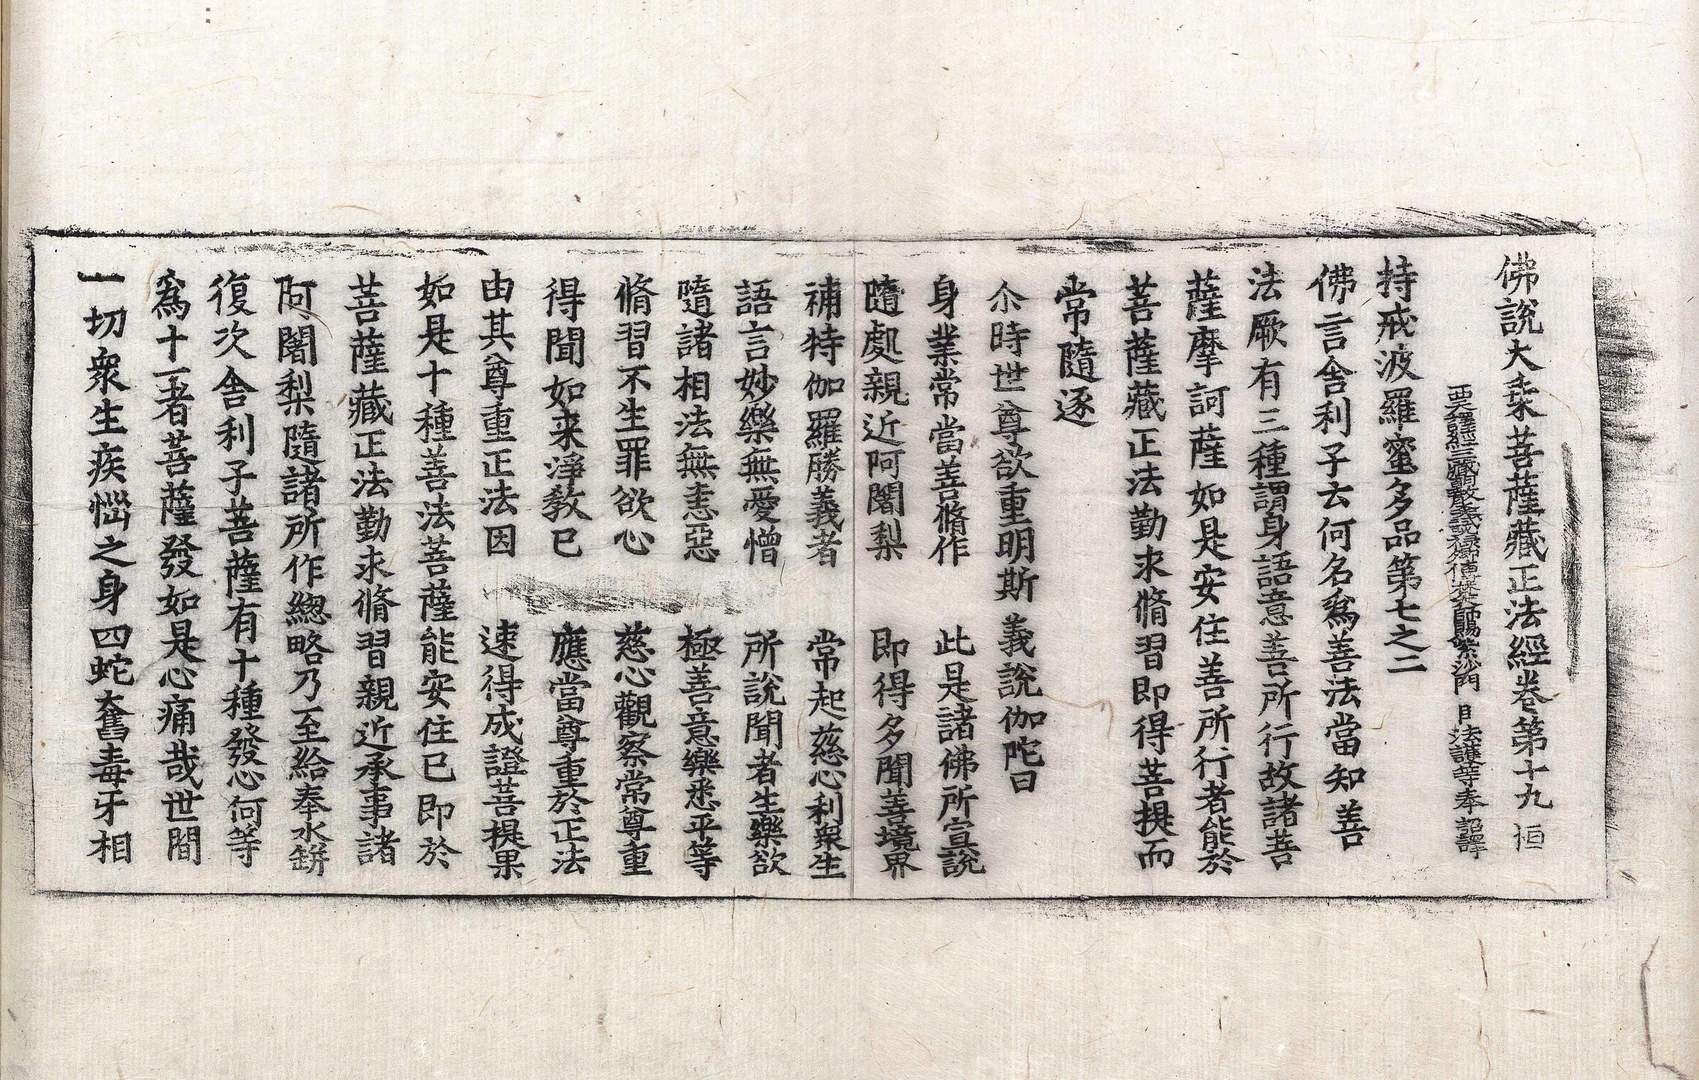 佛說大乗菩薩藏正法經卷第十九 恒
西天譯經三藏朝散大夫試鴻臚少卿傳梵大師賜紫沙門臣法護等奉 詔譯
持戒波羅蜜多品第七之二
佛言舍利子云何名爲善法當知善
法厥有三種謂身語意善所行故諸菩
薩摩訶薩如是安住善所行者能於
菩薩藏正法勤求脩習即得菩提而
常隨逐
尒時世尊欲重明斯義說伽陀曰
身業常當善脩作 此是諸佛所宣說
隨處親近阿闍梨 即得多聞善境界
補特伽羅勝義者 常起慈心利衆生
語言妙樂無愛憎 所說聞者生樂欲
隨諸相法無恚惡 極善意樂悉平等
脩習不生罪欲心 慈心觀察常尊重
得聞如来淨教已 應當尊重於正法
由其尊重正法因 速得成證菩提果
如是十種善法菩薩能安住已即於
菩薩藏正法勤求脩習親近承事諸
阿闍梨隨諸所作緫略乃至給奉水缾
復次舍利子菩薩有十種發心何等
爲十一者菩薩發如是心痛哉世間
一切衆生疾惱之身四蛇奮毒牙相